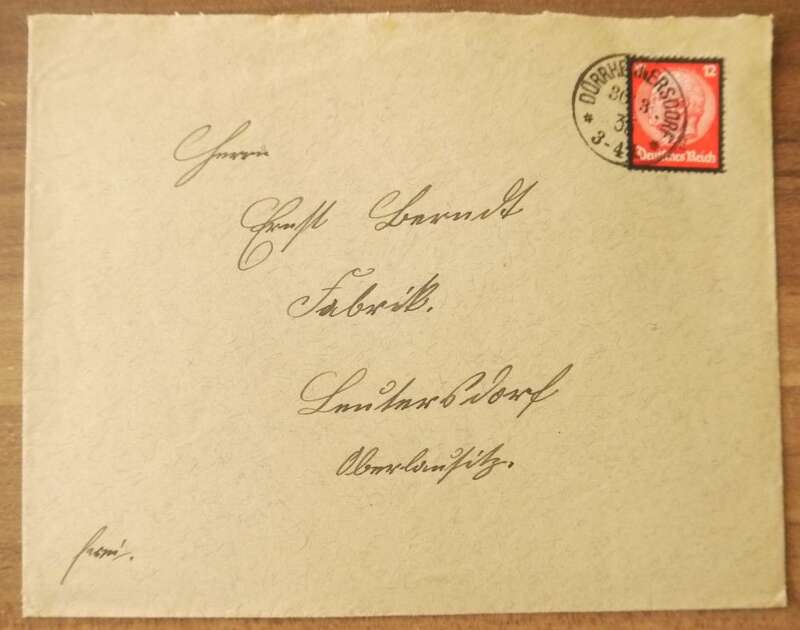 DÜRRHENNERSDORF
3-4
12
Deutsches Reich
Herrn
Ernst Berndt
Fabrik.
Leutersdorf
Oberlausitz.
frei.